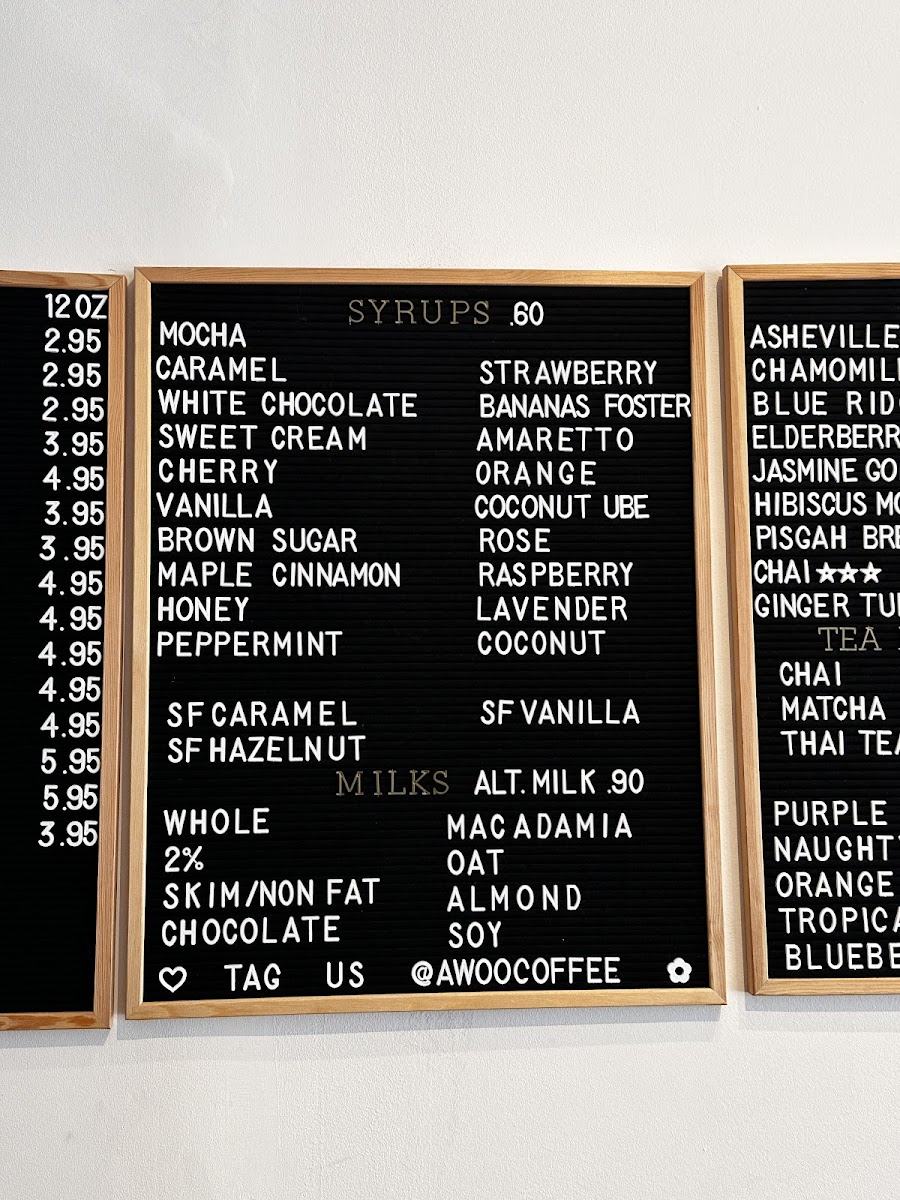 12 OZ
2.95
2.95
2.95
3.95
4.95
3.95
3.95
4.95
4.95
4.95
4.95
4.95
5.95
5.95
3.95
SYRUPS .60
MOCHA
CARAMEL
WHITE CHOCOLATE
SWEET CREAM
CHERRY
VANILLA
BROWN SUGAR
MAPLE CINNAMON
HONEY
PEPPERMINT
STRAWBERRY
BANANAS FOSTER
AMARETTO
ORANGE
COCONUT UBE
ROSE
RASPBERRY
LAVENDER
COCONUT
SF CARAMEL
SF HAZELNUT
SF VANILLA
MILKS ALT. MILK .90
WHOLE
2%
SKIM/NON FAT
CHOCOLATE
MACADAMIA
OAT
ALMOND
SOY
♡ TAG US @AWOOCOFFEE
ASHEVILLE
CHAMOMIL
BLUE RID
ELDERBERR
JASMINE GO
HIBISCUS MO
PISGAH BRE
CHAI ★★★
GINGER TU
TEA
CHAI
MATCHA
THAI TEA
PURPLE
NAUGHT
ORANGE
TROPICA
BLUEBE